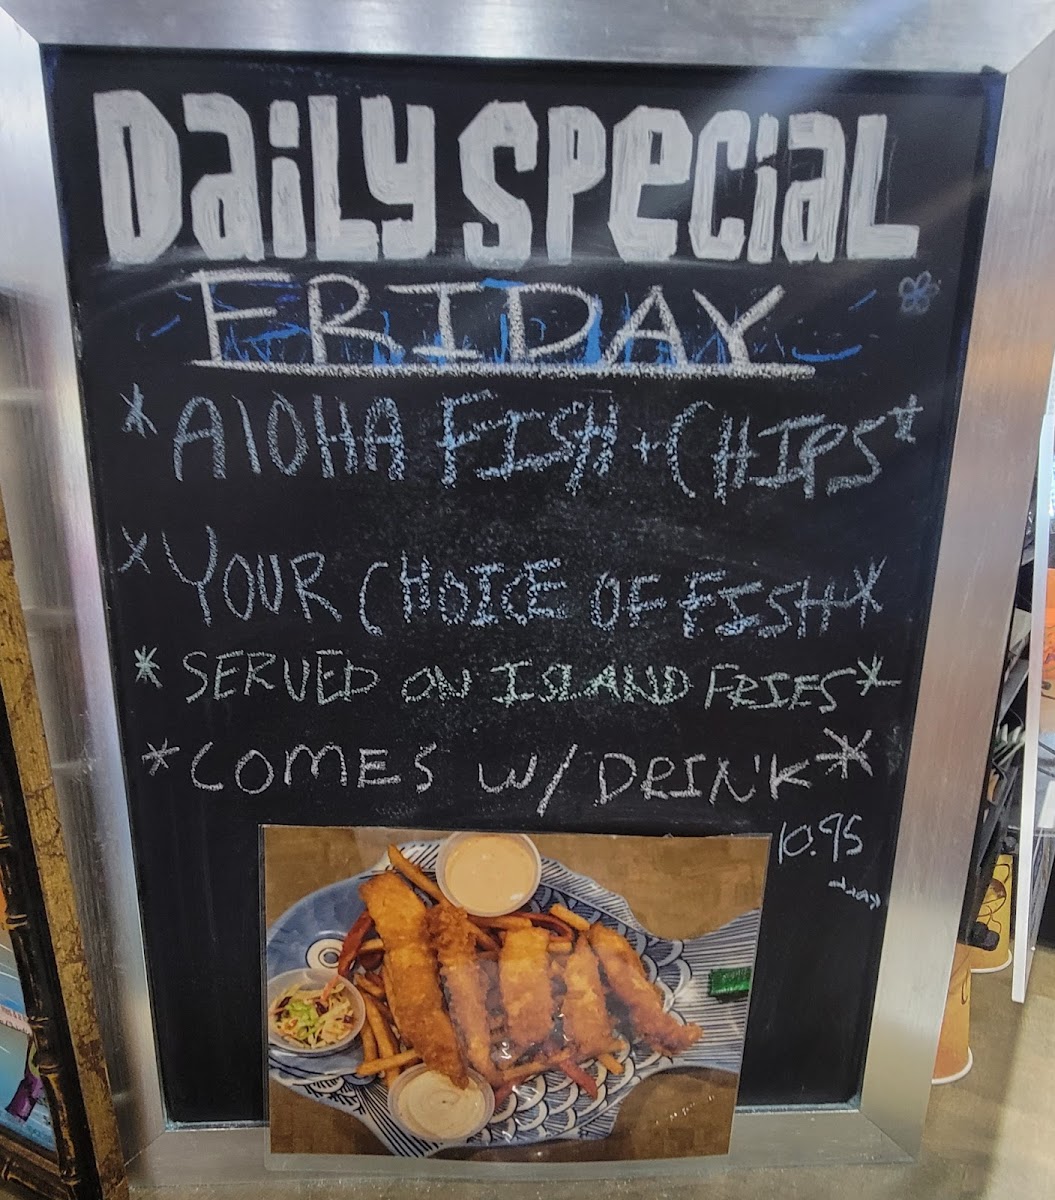 DAILY SPECIAL
FRIDAY
*ALOHA FISH + CHIPS*
*YOUR CHOICE OF FISH*
*SERVED ON ISLAND FRIES*
*COMES W/ DRINK*
10.95
+tax